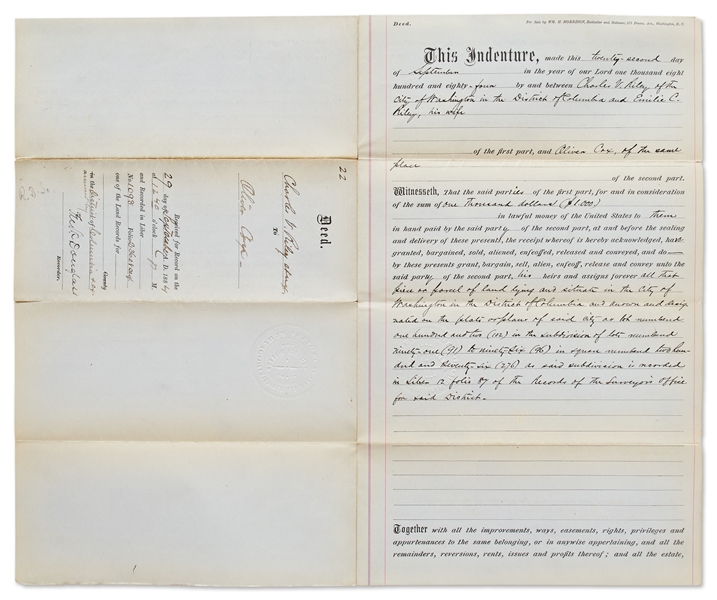 Deed.
For Sale by WM. H. MORRISON, Bookseller and Stationer, 475 Penna. Ave., Washington, D. C.
This Indenture, made this twenty-second day
of September in the year of our Lord one thousand eight
hundred and eighty-four by and between Charles V. Riley of the
City of Washington in the District of Columbia and Emilie C.
Riley, his wife
of the first part, and Oliver Cox, of the same
place
of the second part.
Witnesseth, That the said parties of the first part, for and in consideration
of the sum of one Thousand dollars ($1000)
in lawful money of the United States to them
in hand paid by the said party of the second part, at and before the sealing
and delivery of these presents, the receipt whereof is hereby acknowledged, have
granted, bargained, sold, aliened, enfeoffed, released and conveyed, and do
by these presents grant, bargain, sell, alien, enfeoff, release and convey unto the
said party of the second part, his heirs and assigns forever all that
piece or parcel of land lying and situate in the City of
Washington in the District of Columbia and known and desig
nated on the plats or plans of said City as lot numbered
one hundred and two (102) in the subdivision of lots numbered
ninety-one (91) to ninety-six (96) in square numbered two hun
dred and seventy-six (276) as said subdivision is recorded
in Liber 12 folio 87 of the Records of the Surveyor's Office
for said District.
Together with all the improvements, ways, easements, rights, privileges and
appurtenances to the same belonging, or in anywise appertaining, and all the
remainders, reversions, rents, issues and profits thereof; and all the estate,
22
Deed.
Charles V. Riley
To
Oliver Cox
Received for Record on the
29 day of September A. D. 1884
at 12.40 o'clock P. M.
and Recorded in Liber
No. 1098 Folio
one of the Land Records for
County
in the District of Columbia
Fredk Douglass
Recorder.